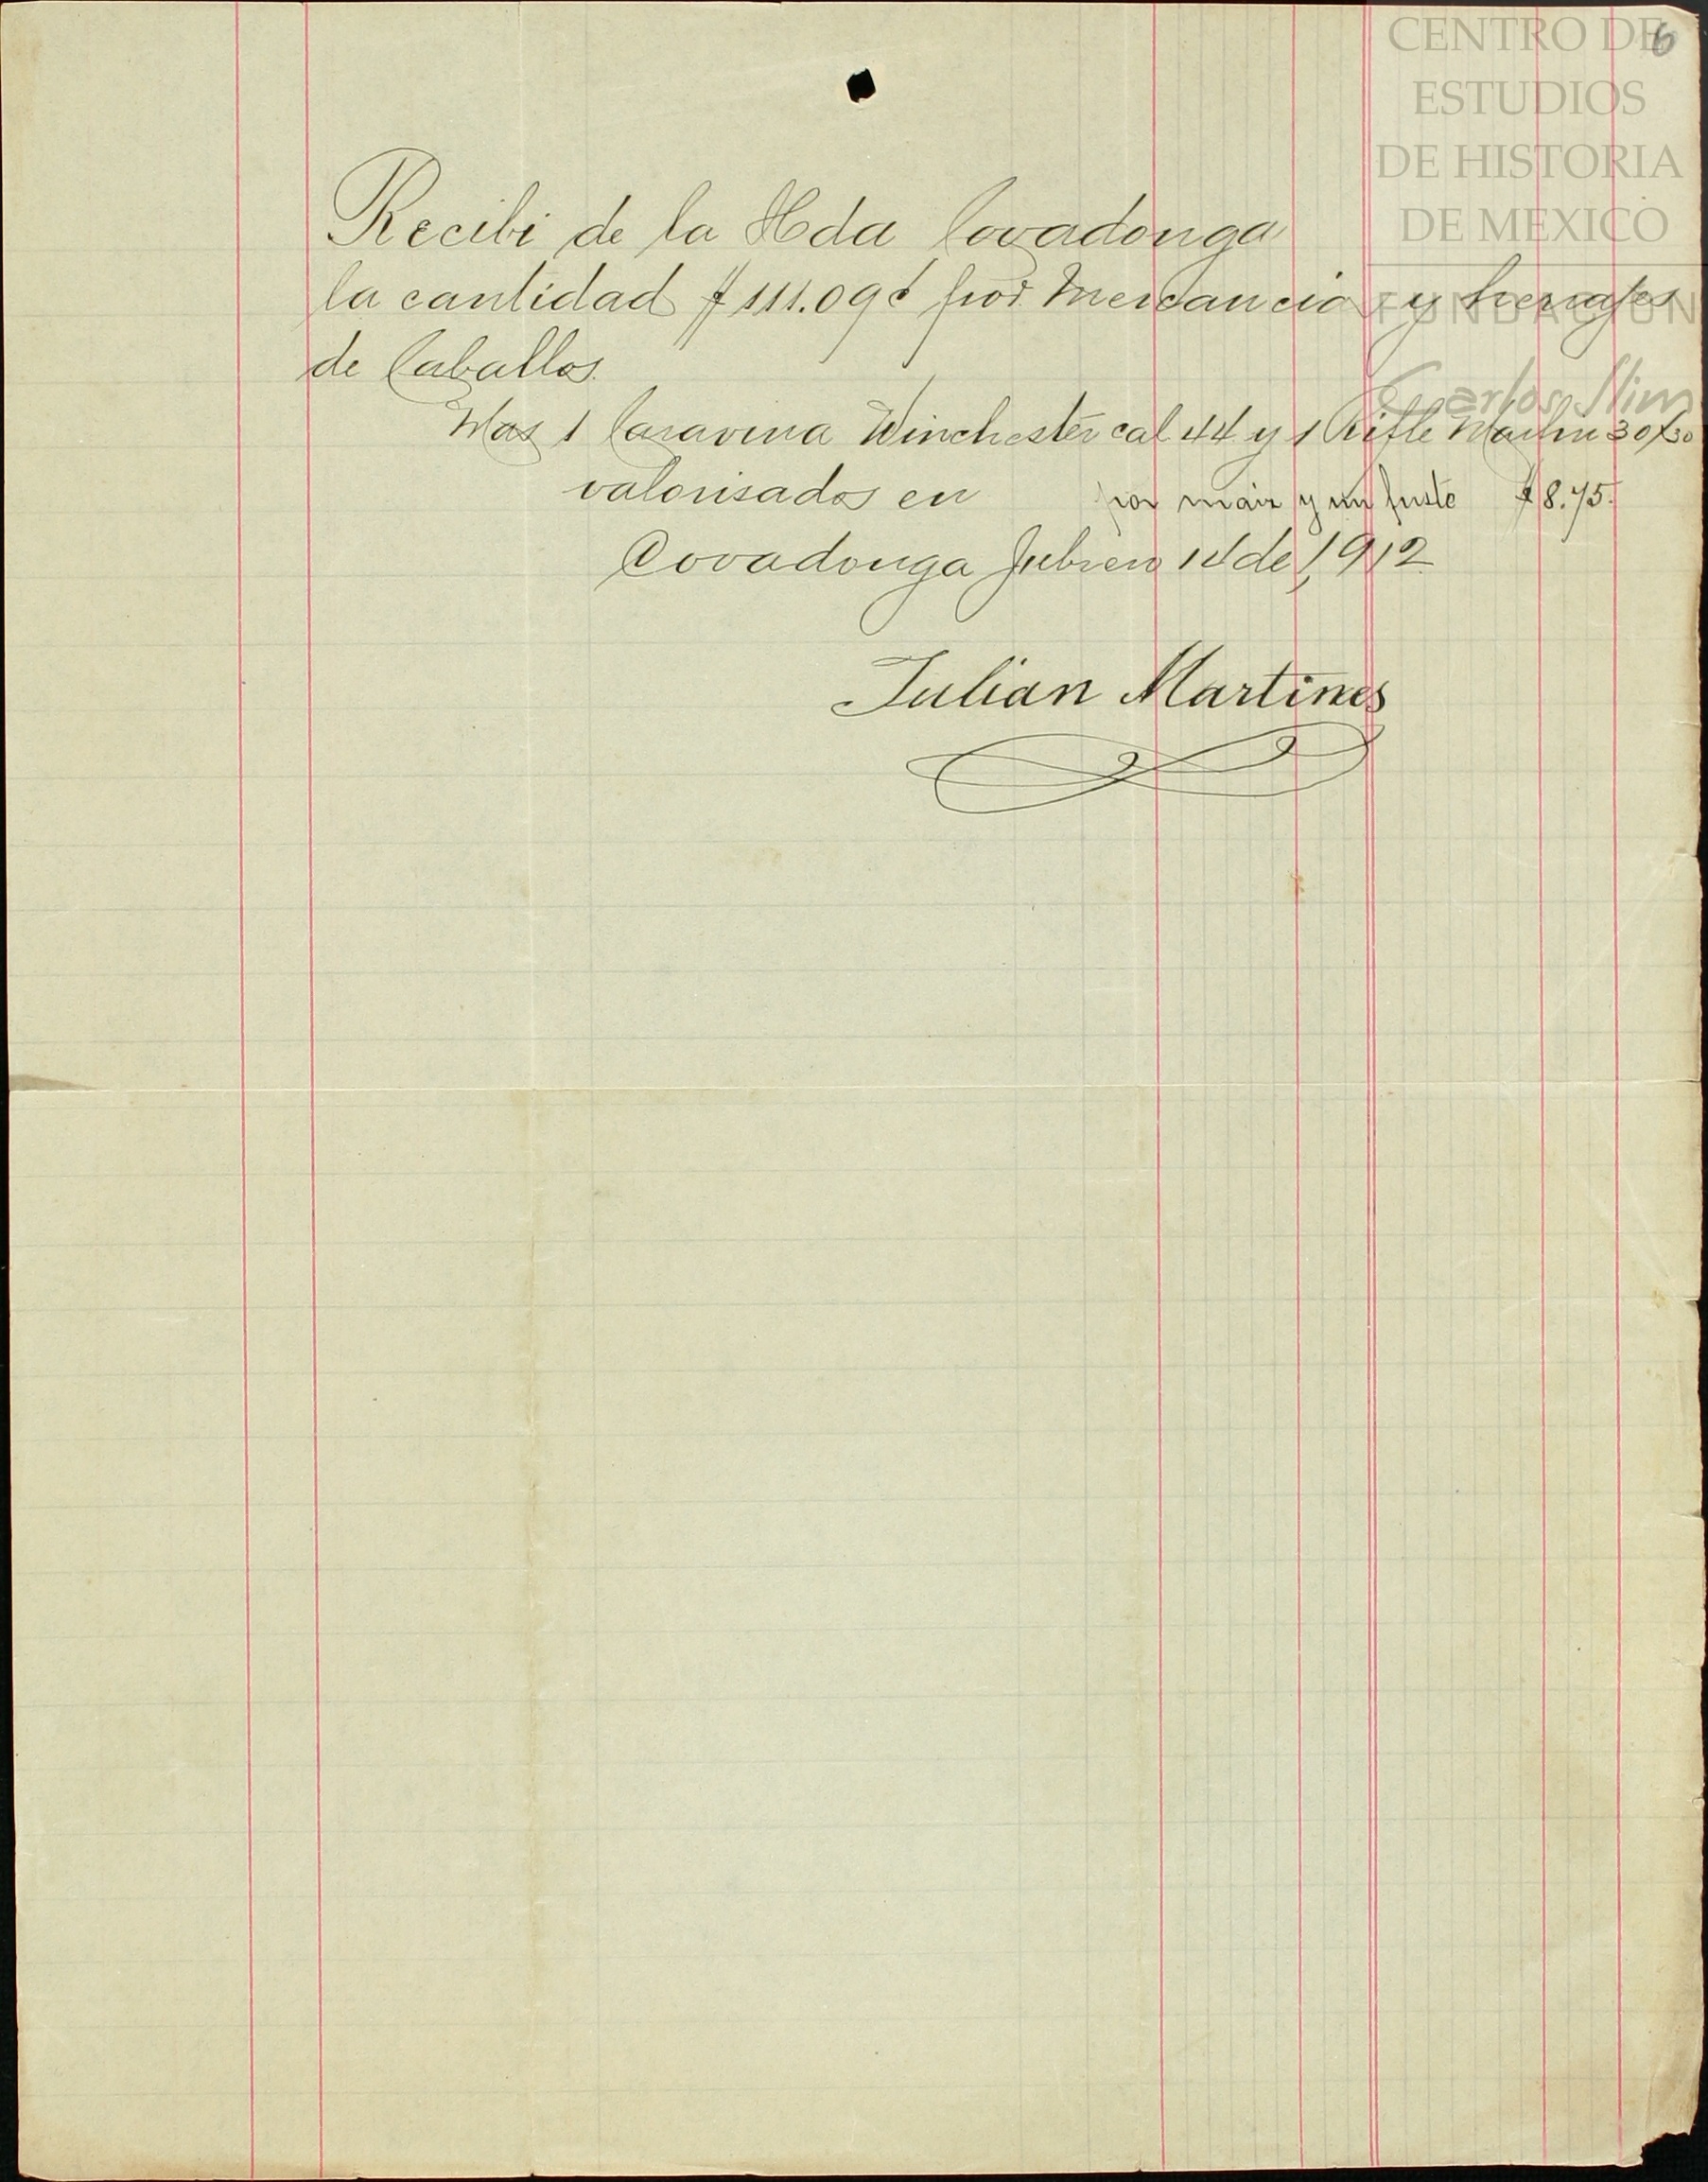 CENTRO DE
ESTUDIOS
DE HISTORIA
DE MEXICO
FUNDACION
Carlos Slim
6
Recibi de la Hda Covadonga
la cantidad $111.09¢ por Mercancia y herrajes
de Caballos.
Mas 1 Caravina Winchester cal 44 y 1 Rifle Marlin 30x30
valorisados en por maiz y un fuste $8.75.
Covadonga Febrero 14 de 1,912
Julian Martines